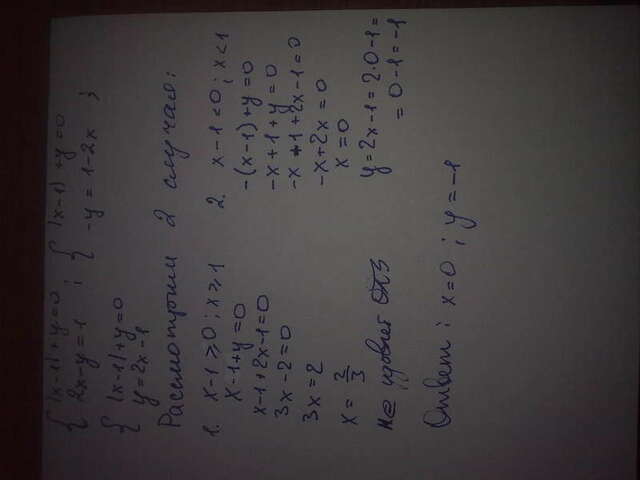 { |x-1|+y=0 ; { |x-1|+y=0
2x-y=1 -y=1-2x ;
{ |x-1|+y=0
y=2x-1
Рассмотрим 2 случая:
1. x-1≥0; x≥1
x-1+y=0
x-1+2x-1=0
3x-2=0
3x=2
x=2/3
не удовлет ОДЗ
2. x-1<0; x<1
-(x-1)+y=0
-x+1+y=0
-x+1+2x-1=0
-x+2x=0
x=0
y=2x-1=2·0-1=
=0-1=-1
Ответ: x=0; y=-1